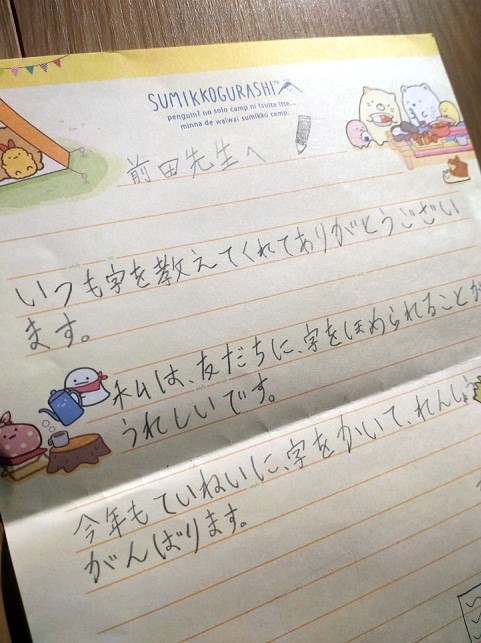 SUMIKKOGURASHI™
penguin? no solo camp ni tsuite itte...
minna de waiwai sumikko camp.
前田先生へ
いつも字を教えてくれてありがとうござい
ます。
私は、友だちに、字をほめられることが
うれしいです。
今年もていねいに、字をかいて、れんしゅう
がんばります。